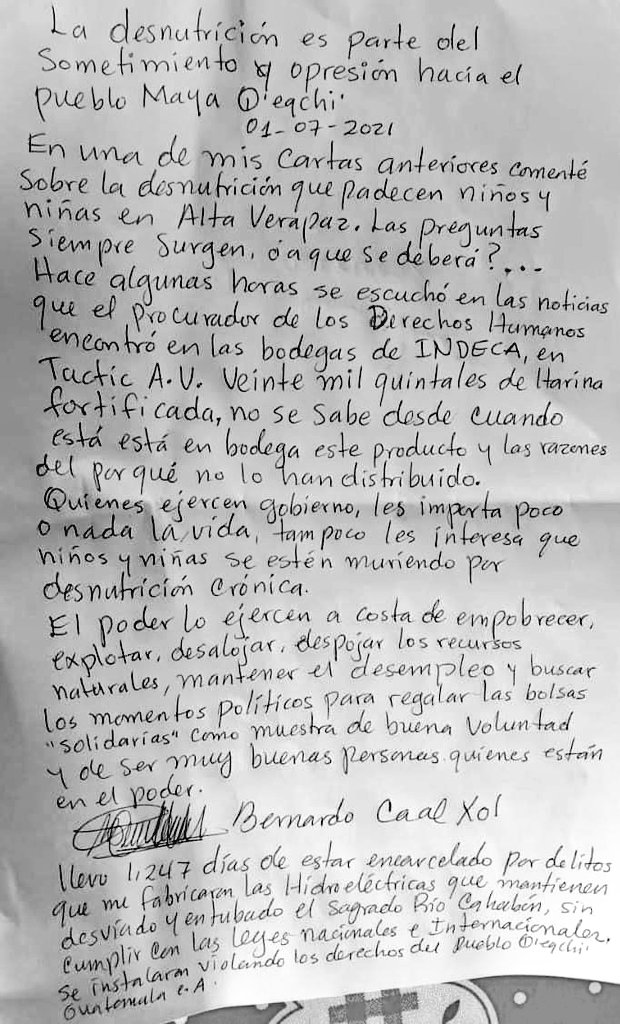 La desnutrición es parte del
Sometimiento y opresión hacia el
pueblo Maya Q'eqchi'
01-07-2021
En una de mis Cartas anteriores comenté
Sobre la desnutrición que padecen niños y
niñas en Alta Verapaz. Las preguntas
siempre Surgen, ¿a que se deberá?...
Hace algunas horas se escuchó en las noticias
que el procurador de los Derechos Humanos
encontró en las bodegas de INDECA, en
Tactic A.V. Veinte mil quintales de Harina
fortificada, no se sabe desde cuando
está está en bodega este producto y las razones
del por qué no lo han distribuido.
Quienes ejercen gobierno, les importa poco
o nada la vida, tampoco les interesa que
niños y niñas se estén muriendo por
desnutrición crónica.
El poder lo ejercen a costa de empobrecer,
explotar, desalojar, despojar los recursos
naturales, mantener el desempleo y buscar
los momentos políticos para regalar las bolsas
"solidarias" como muestra de buena voluntad
y de ser muy buenas personas quienes están
en el poder.
Bernardo Caal Xol
llevo 1,247 días de estar encarcelado por delitos
que me fabricaron las Hidroeléctricas que mantienen
desviado y entubado el sagrado Río Cahabón, sin
cumplir con las leyes nacionales e Internacionales,
se instalaron violando los derechos del Pueblo Q'eqchi'
Guatemala C.A.